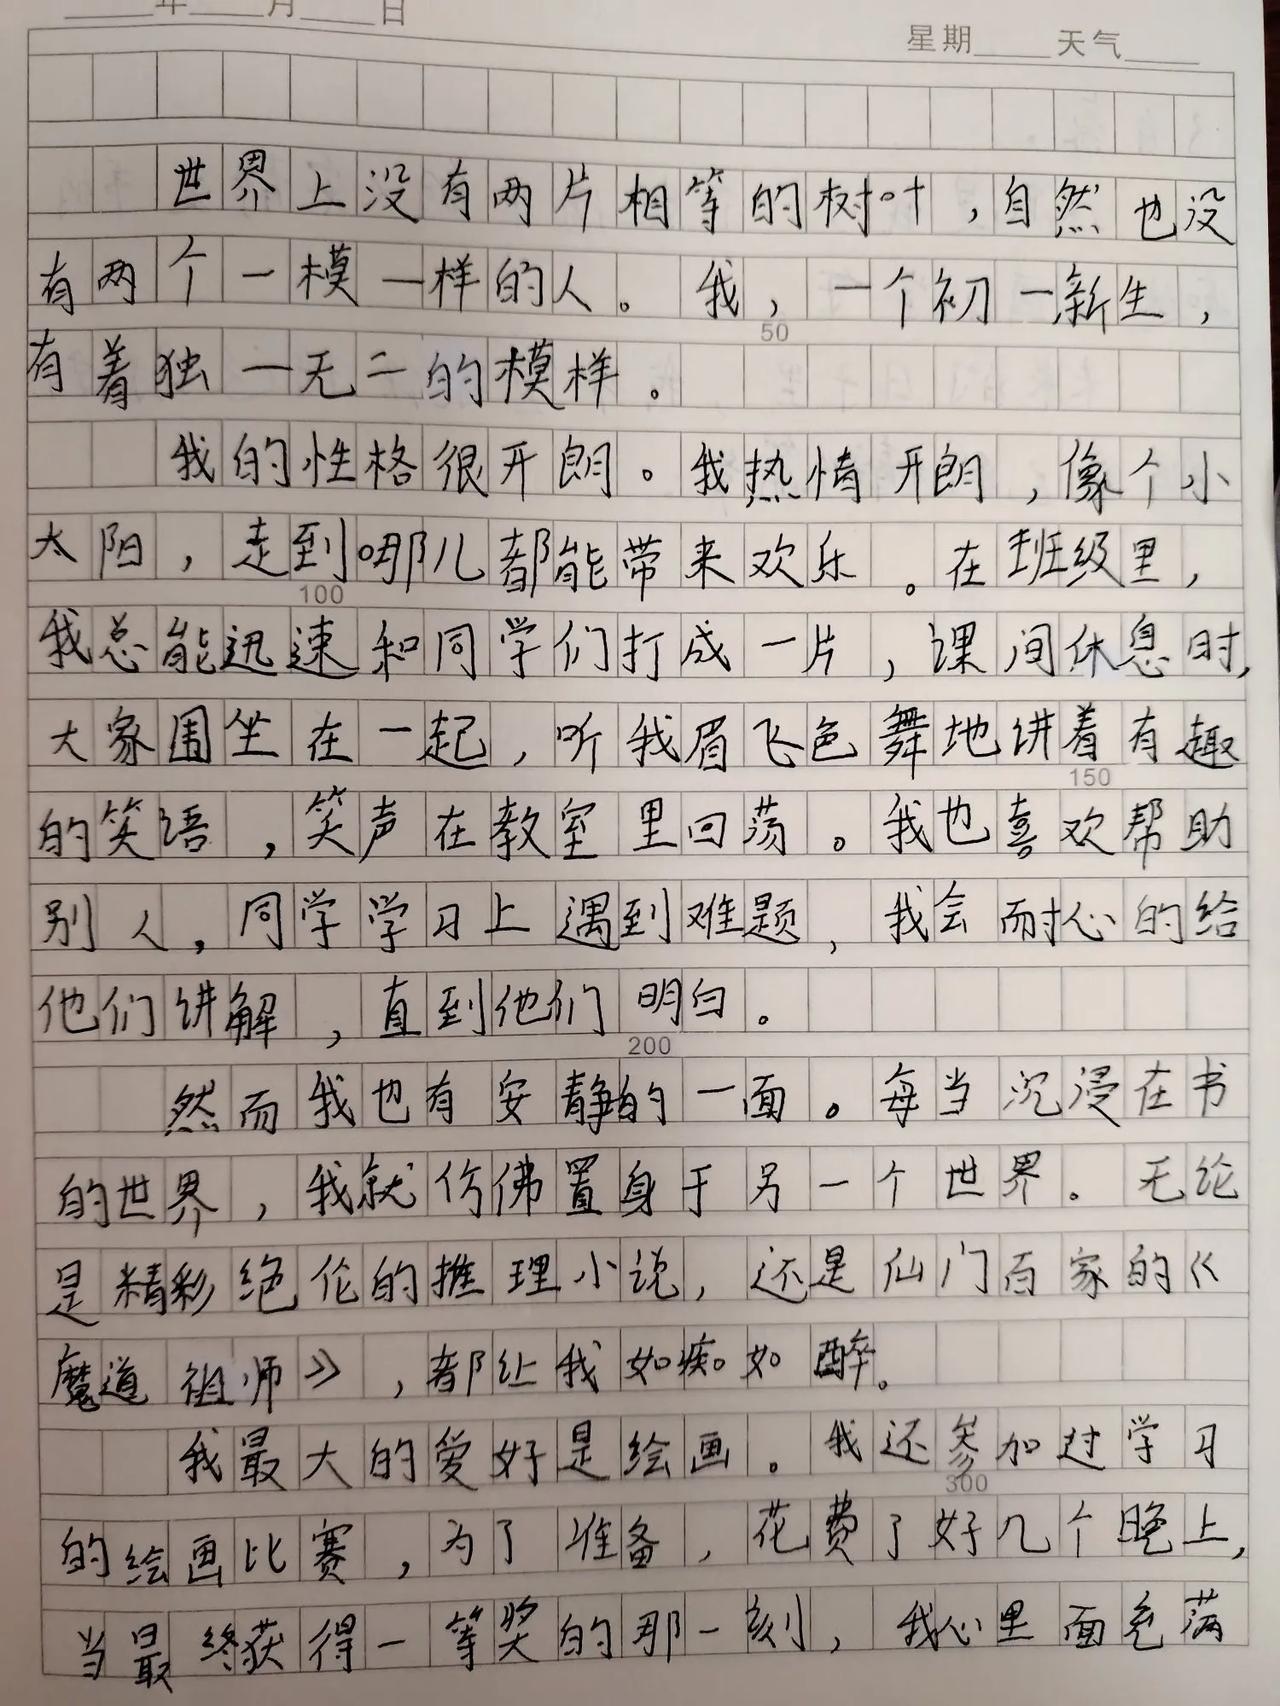 年 月 日
星期 天气
世界上没有两片相等的树叶，自然也没
有两个一模一样的人。我，一个初一新生，
50
有着独一无二的模样。
我的性格很开朗。我热情开朗，像个小
太阳，走到哪儿都能带来欢乐。在班级里，
100
我总能迅速和同学们打成一片，课间休息时，
大家围坐在一起，听我眉飞色舞地讲着有趣
150
的笑语，笑声在教室里回荡。我也喜欢帮助
别人，同学学习上遇到难题，我会耐心的给
他们讲解，直到他们明白。
200
然而我也有安静的一面。每当沉浸在书
的世界，我就仿佛置身于另一个世界。无论
是精彩绝伦的推理小说，还是仙门百家的《
魔道祖师》，都让我如痴如醉。
我最大的爱好是绘画。我还参加过学习
300
的绘画比赛，为了准备，花费了好几个晚上，
当最终获得一等奖的那一刻，我心里面充满